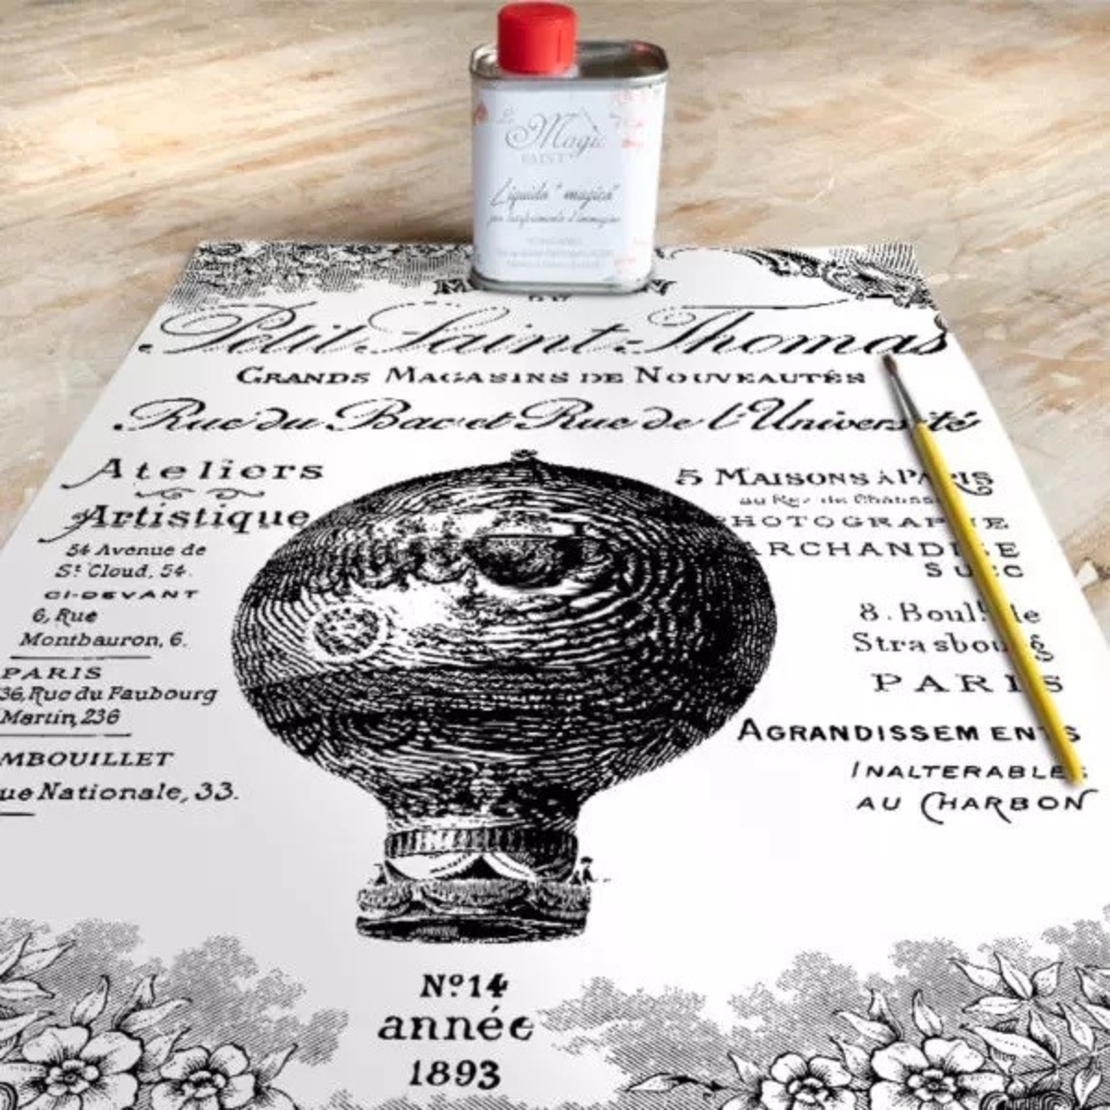 Magic
PAINT
Liquido "magico"
per trasferimento d'immagine
Petit Saint-Thomas
GRANDS MAGASINS DE NOUVEAUTÉS
Rue du Bac et Rue de l'Université
Ateliers
Artistique
54 Avenue de
St Cloud, 54.
CI-DEVANT
6, Rue
Montbauron, 6.
PARIS
36, Rue du Faubourg
Martin, 236
MBOUILLET
ue Nationale, 33.
5 MAISONS À PARIS
au Rez de Chauss
HOTOGRAPHIE
ARCHANDISE
SUCC
8. Boul. de
Strasbourg
PARIS
AGRANDISSEMENTS
INALTERABLES
AU CHARBON
Nº 14
année
1893